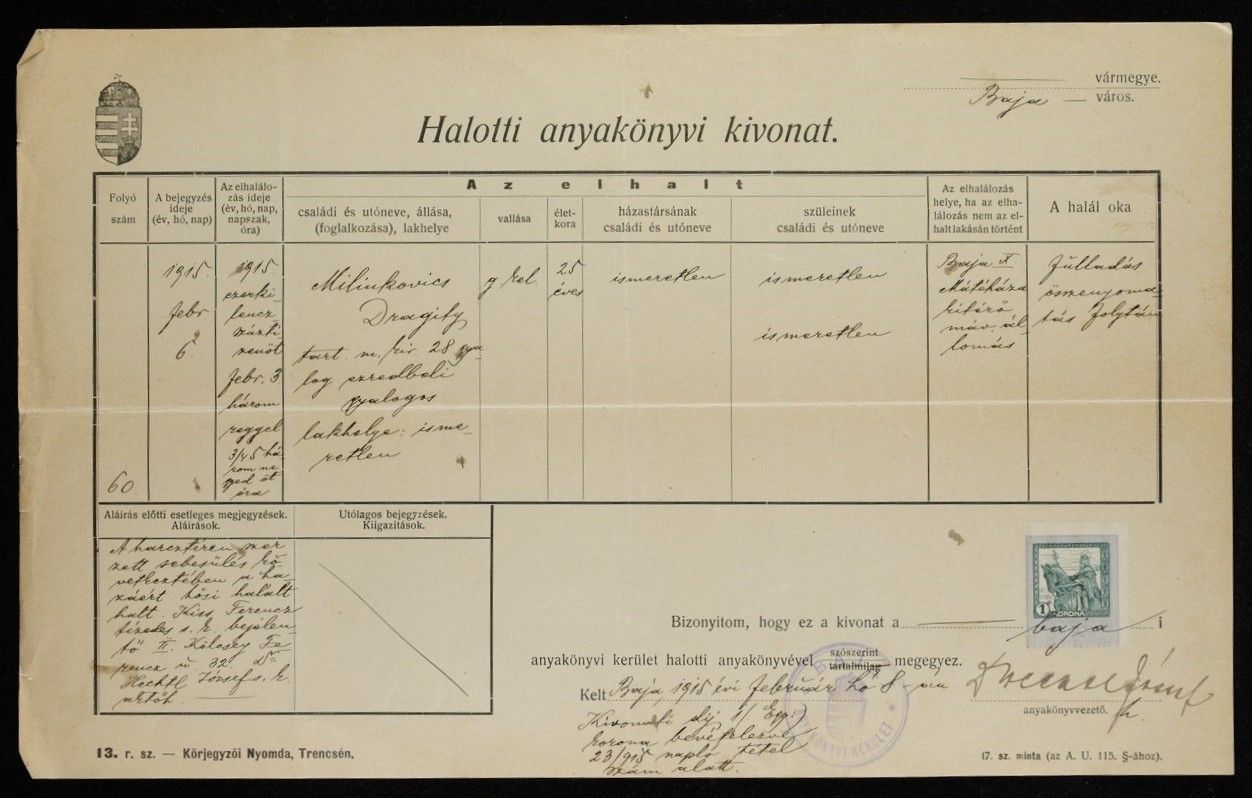 vármegye.
Baja — város.
Halotti anyakönyvi kivonat.
Folyó szám
A bejegyzés ideje (év, hó, nap)
Az elhalálo-
zás ideje
(év, hó, nap,
napszak,
óra)
Az elhalt
családi és utóneve, állása,
(foglalkozása), lakhelye
vallása
élet-
kora
házastársának
családi és utóneve
szüleinek
családi és utóneve
Az elhalálozás
helye, ha az elha-
lálozás nem az el-
halt lakásán történt
A halál oka
60
1915.
febr
6.
1915
ezerki-
lencz-
százti-
zenöt
febr. 3
három
reggel
3/45 há-
rom ne-
gyed öt
óra
Milinkovics
Dragity
tart. m. kir. 28 gya-
log ezredbeli
gyalogos
lakhelye: isme-
retlen
g. kel.
25
éves
ismeretlen
ismeretlen
ismeretlen
Baja II.
Mátéháza
kitérő
máv. ál-
lomás
Fulladás
összenyoma-
tás folytán
Aláirás előtti esetleges megjegyzések.
Aláirások.
Utólagos bejegyzések.
Kiigazitások.
A harcztéren szer-
zett sebesülés kö-
vetkeztében a ha-
záért hősi halált
halt. Kiss Ferencz
tizedes s. k. bejelen-
tő II. Kölcsey Fe-
rencz u. 32. Dr
Hechtl József s. k.
1 KORONA
Bizonyitom, hogy ez a kivonat a baja i
anyakönyvi kerület halotti anyakönyvével szószerint tartalmilag megegyez.
Kelt Baja, 1915 évi február hó 8-án
anyakönyvvezető.
h.
Kivonati díj 1/ Egy/
korona bevételezve
23/915 napló tétel
szám alatt.
ANYAKÖNYVI KERÜLET
13. r. sz. — Körjegyzői Nyomda, Trencsén.
17. sz. minta (az A. U. 115. §-ához).